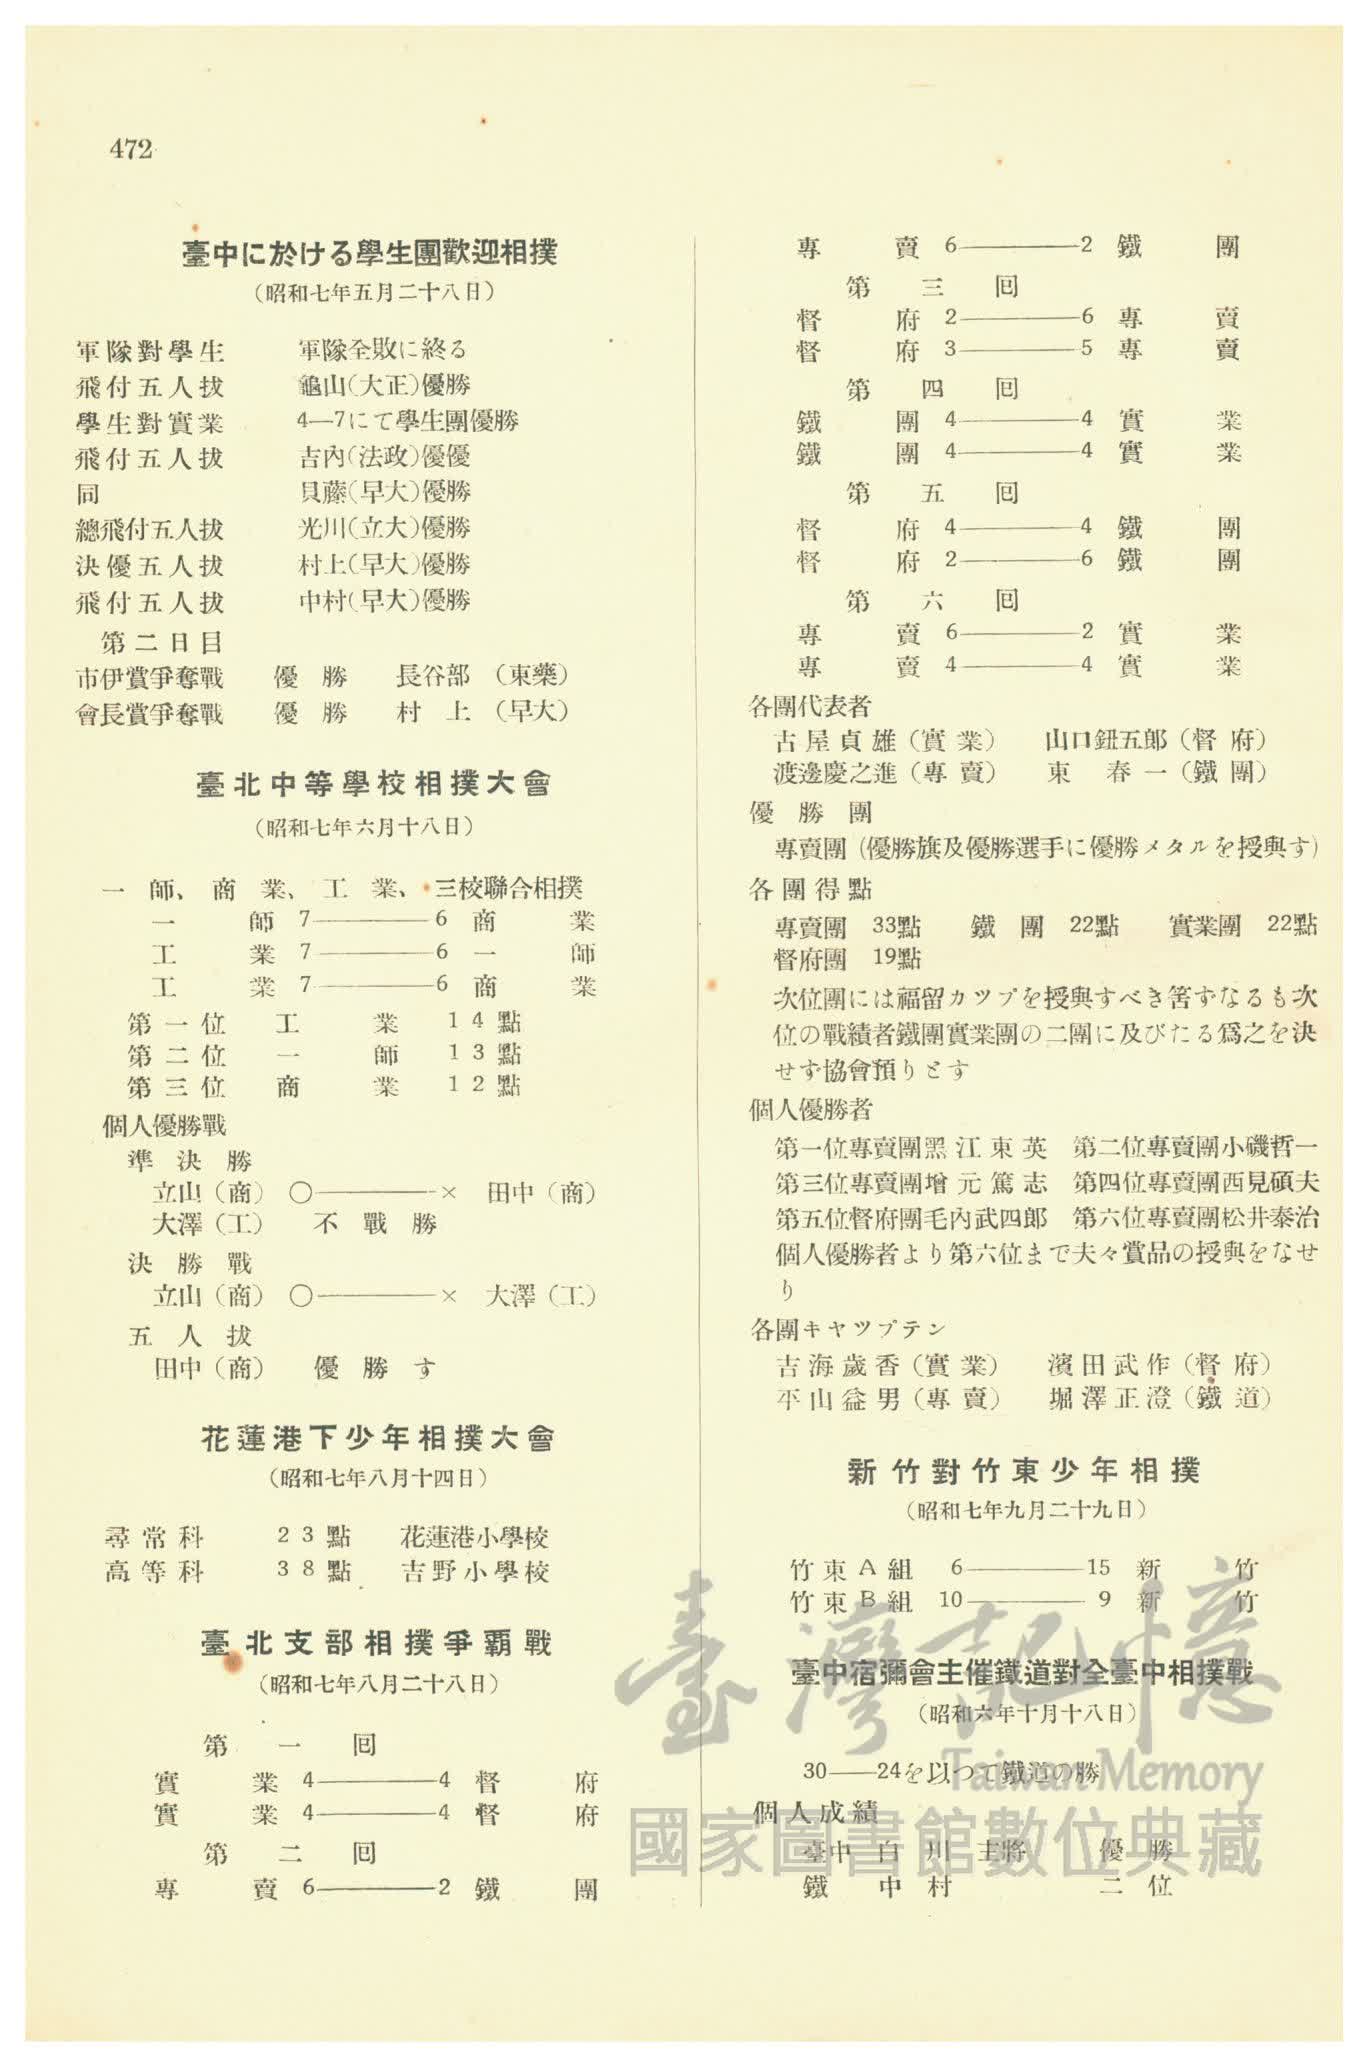 472
臺中に於ける學生團歡迎相撲
（昭和七年五月二十八日）
軍隊對學生 軍隊全敗に終る
飛付五人拔 龜山（大正）優勝
學生對實業 4―7にて學生團優勝
飛付五人拔 吉內（法政）優優
同 貝藤（早大）優勝
總飛付五人拔 光川（立大）優勝
決優五人拔 村上（早大）優勝
飛付五人拔 中村（早大）優勝
第二日目
市伊賞爭奪戰 優勝 長谷部（東藥）
會長賞爭奪戰 優勝 村上（早大）
臺北中等學校相撲大會
（昭和七年六月十八日）
一師、商業、工業、三校聯合相撲
一師 7―――6 商業
工業 7―――6 一師
工業 7―――6 商業
第一位 工業 14點
第二位 一師 13點
第三位 商業 12點
個人優勝戰
準決勝
立山（商） ○―――× 田中（商）
大澤（工） 不戰勝
決勝戰
立山（商） ○―――× 大澤（工）
五人拔
田中（商） 優勝す
花蓮港下少年相撲大會
（昭和七年八月十四日）
尋常科 23點 花蓮港小學校
高等科 38點 吉野小學校
臺北支部相撲爭霸戰
（昭和七年八月二十八日）
第一回
實業 4―――4 督府
實業 4―――4 督府
第二回
專賣 6―――2 鐵團
專賣 6―――2 鐵團
第三回
督府 2―――6 專賣
督府 3―――5 專賣
第四回
鐵團 4―――4 實業
鐵團 4―――4 實業
第五回
督府 4―――4 鐵團
督府 2―――6 鐵團
第六回
專賣 6―――2 實業
專賣 4―――4 實業
各團代表者
古屋貞雄（實業） 山口鈕五郞（督府）
渡邊慶之進（專賣） 東春一（鐵團）
優勝團
專賣團（優勝旗及優勝選手に優勝メタルを授與す）
各團得點
專賣團 33點 鐵團 22點 實業團 22點
督府團 19點
次位團には福留カツプを授與すべき筈ずなるも次
位の戰績者鐵團實業團の二團に及びたる爲之を決
せず協會預りとす
個人優勝者
第一位專賣團黑江東英 第二位專賣團小磯哲一
第三位專賣團增元篤志 第四位專賣團西見碩夫
第五位督府團毛內武四郞 第六位專賣團松井泰治
個人優勝者より第六位まで夫々賞品の授與をなせ
り
各團キヤツプテン
吉海歲香（實業） 濱田武作（督府）
平山益男（專賣） 堀澤正澄（鐵道）
新竹對竹東少年相撲
（昭和七年九月二十九日）
竹東A組 6―――15 新竹
竹東B組 10―――9 新竹
臺中宿彌會主催鐵道對全臺中相撲戰
（昭和六年十月十八日）
30――24を以つて鐵道の勝
個人成績
臺中 白川 主將 優勝
鐵 中村 二位
臺灣記憶
Taiwan Memory
國家圖書館數位典藏